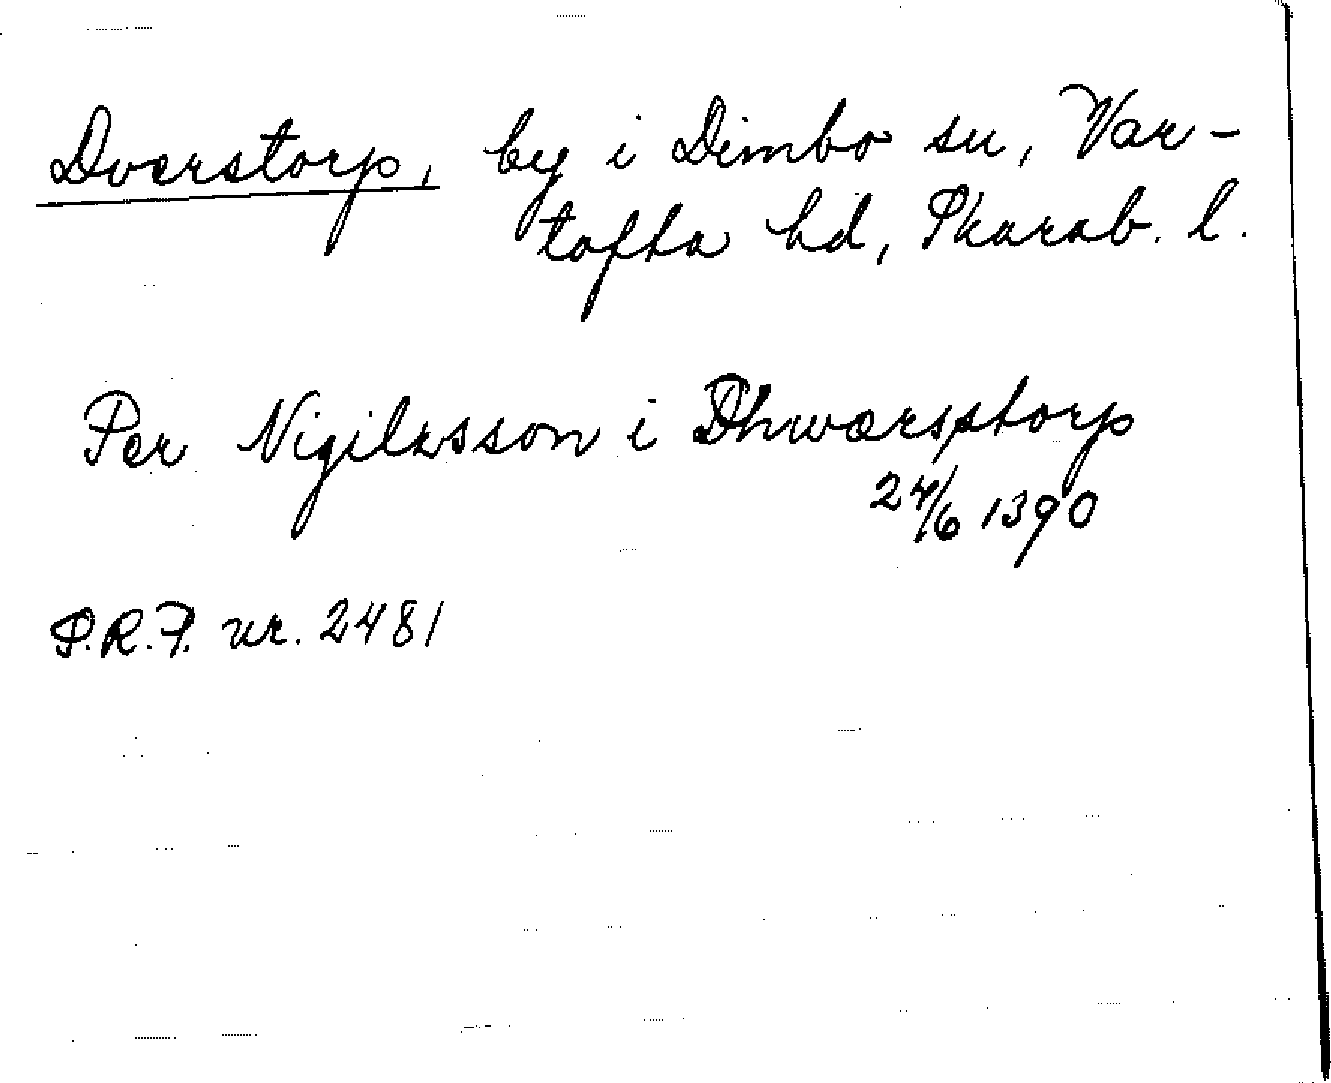 Dværstorp, by i Dimbo sn, Var-
tofta hd, Skarab. l.
Per Nigilsson i Dhwærsstorp
24/6 1390
S.R.P. nr. 2481